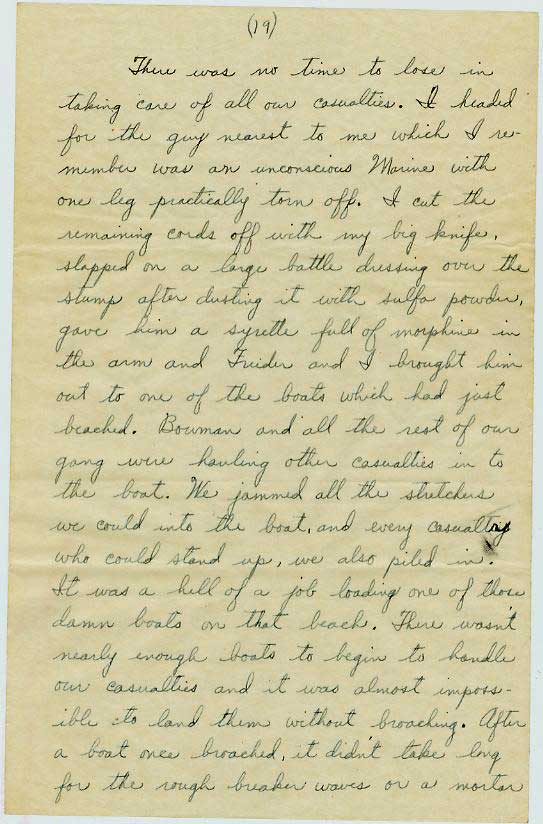 (19)
There was no time to lose in
taking care of all our casualties. I headed
for the guy nearest to me which I re-
member was an unconscious Marine with
one leg practically torn off. I cut the
remaining cords off with my big knife,
slapped on a large battle dressing over the
stump after dusting it with sulfa powder,
gave him a syrette full of morphine in
the arm and Frieder and I brought him
out to one of the boats which had just
beached. Bowman and all the rest of our
gang were hauling other casualties in to
the boat. We jammed all the stretchers
we could into the boat, and every casualty
who could stand up, we also piled in.
It was a hell of a job loading one of those
damn boats on that beach. There wasn't
nearly enough boats to begin to handle
our casualties and it was almost imposs-
ible to land them without broaching. After
a boat once broached, it didn't take long
for the rough breaker waves or a mortar